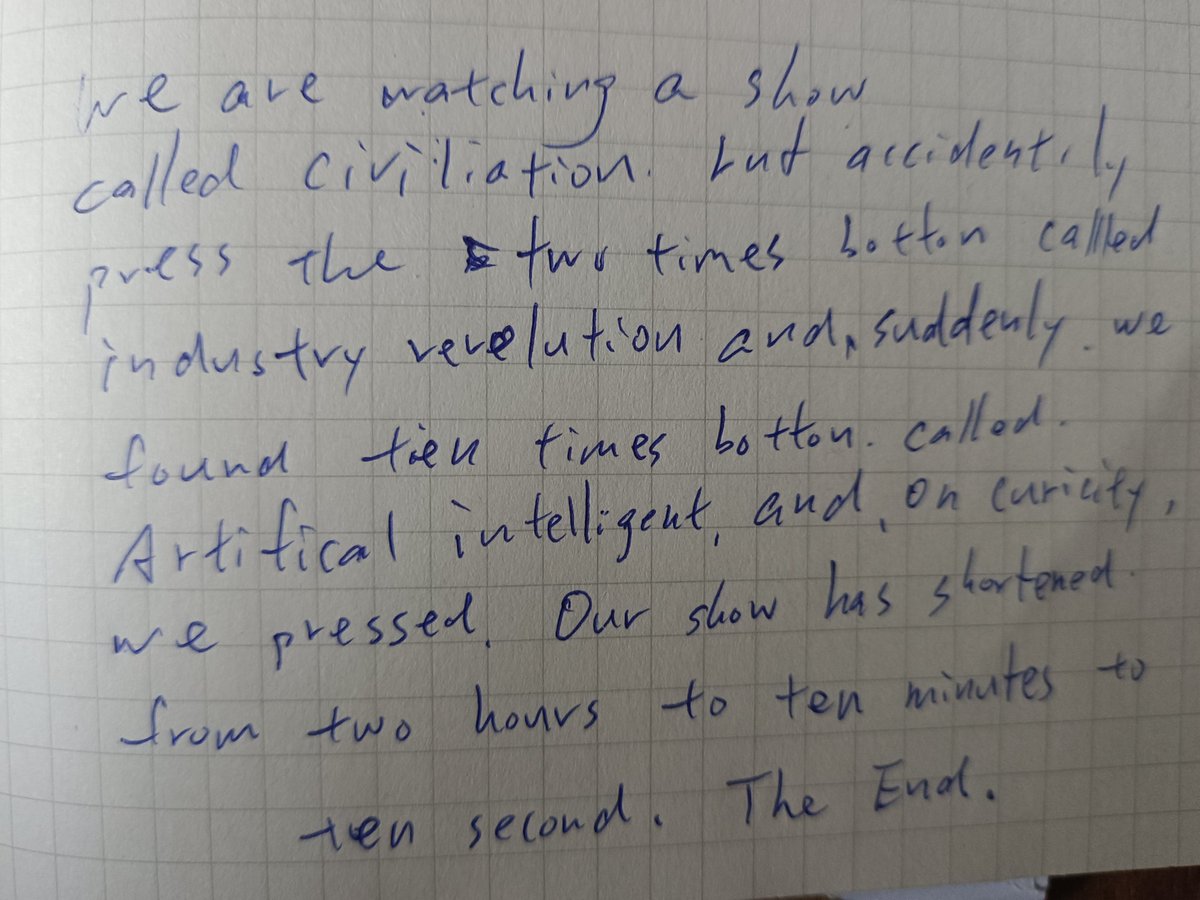 We are watching a show
called civiliation. but accidently
press the two times botton called
industry revelution and, suddenly. we
found ten times botton. called.
Artifical intelligent, and, on curicity,
we pressed. Our show has shortened.
from two hours to ten minutes to
ten second. The End.